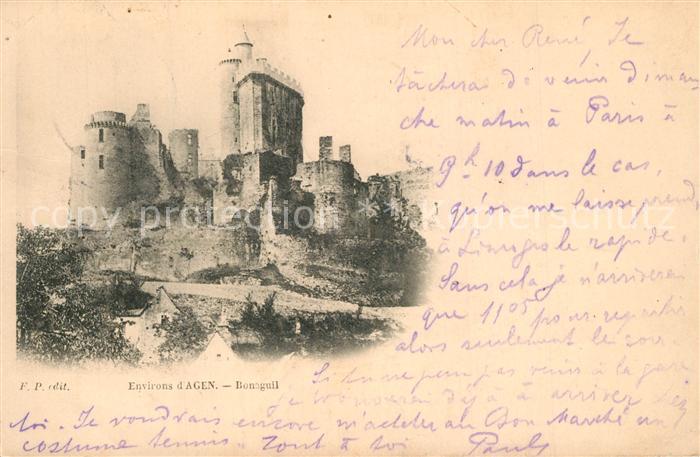 Mon cher René, Je
tâcherai de venir diman
che matin à Paris à
9h 10 dans le cas,
qu'on me laisse prend
à Limoges le rapide.
Sans cela je n'arriverai
que 11 05 pour repartir
alors seulement le soir
Si tu ne peux pas venir à la gare
je à arriver chez
toi. Je voudrais encore m'acheter au Bon Marché un
costume tennis. - Tout à toi Paul
copy © kopierschutz
F. P. edit. Environs d'AGEN. — Bonaguil